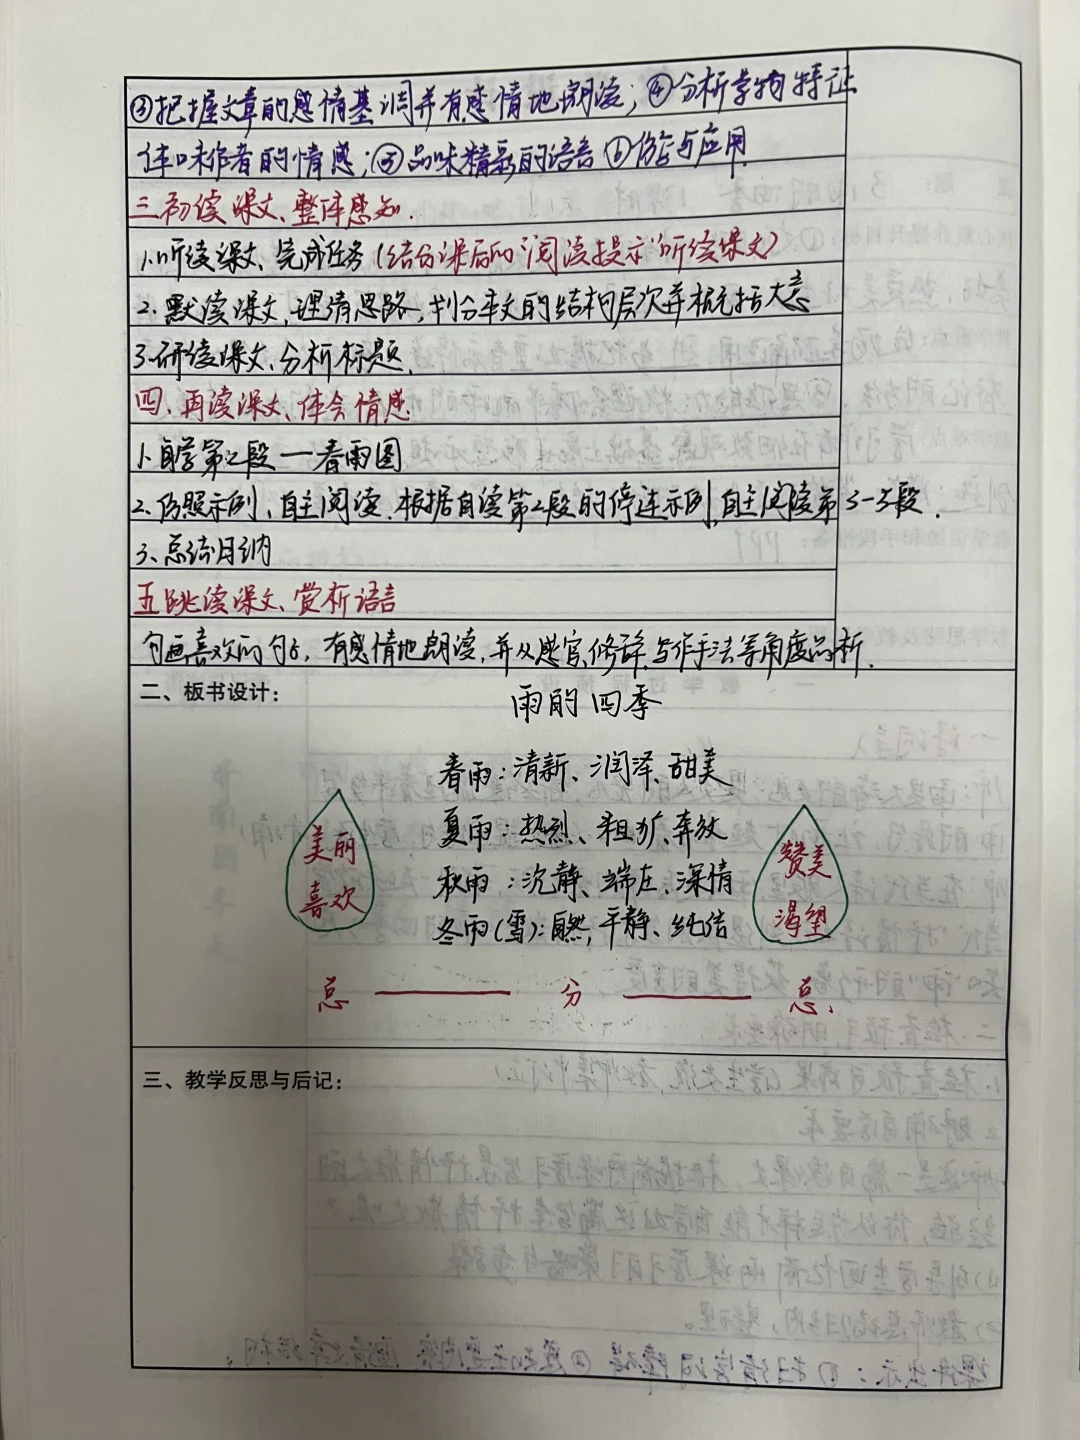 ③把握文章的感情基调并有感情地朗读；④分析景物特征
体味作者的情感；⑤品味精彩的语言⑥仿写与应用
三、初读课文、整体感知.
1.听读课文、完成任务(结合课后的“阅读提示”听读课文)
2.默读课文,理清思路,划分本文的结构层次并概括大意
3.研读课文、分析标题.
四、再读课文、体会情感
1.自学第2段——春雨图
2.仿照示例、自主阅读.根据自读第2段的停连示例,自主阅读第3-5段.
3、总结归纳
五跳读课文、赏析语言
勾画喜欢的句子,有感情地朗读,并从感官,修辞,写作手法等角度品析.
二、板书设计：
雨的四季
春雨：清新、润泽、甜美
夏雨：热烈、粗犷、奔放
秋雨：沉静、端庄、深情
冬雨(雪)：自然,平静、纯洁
美丽
喜欢
赞美
渴望
总——分——总.
三、教学反思与后记：